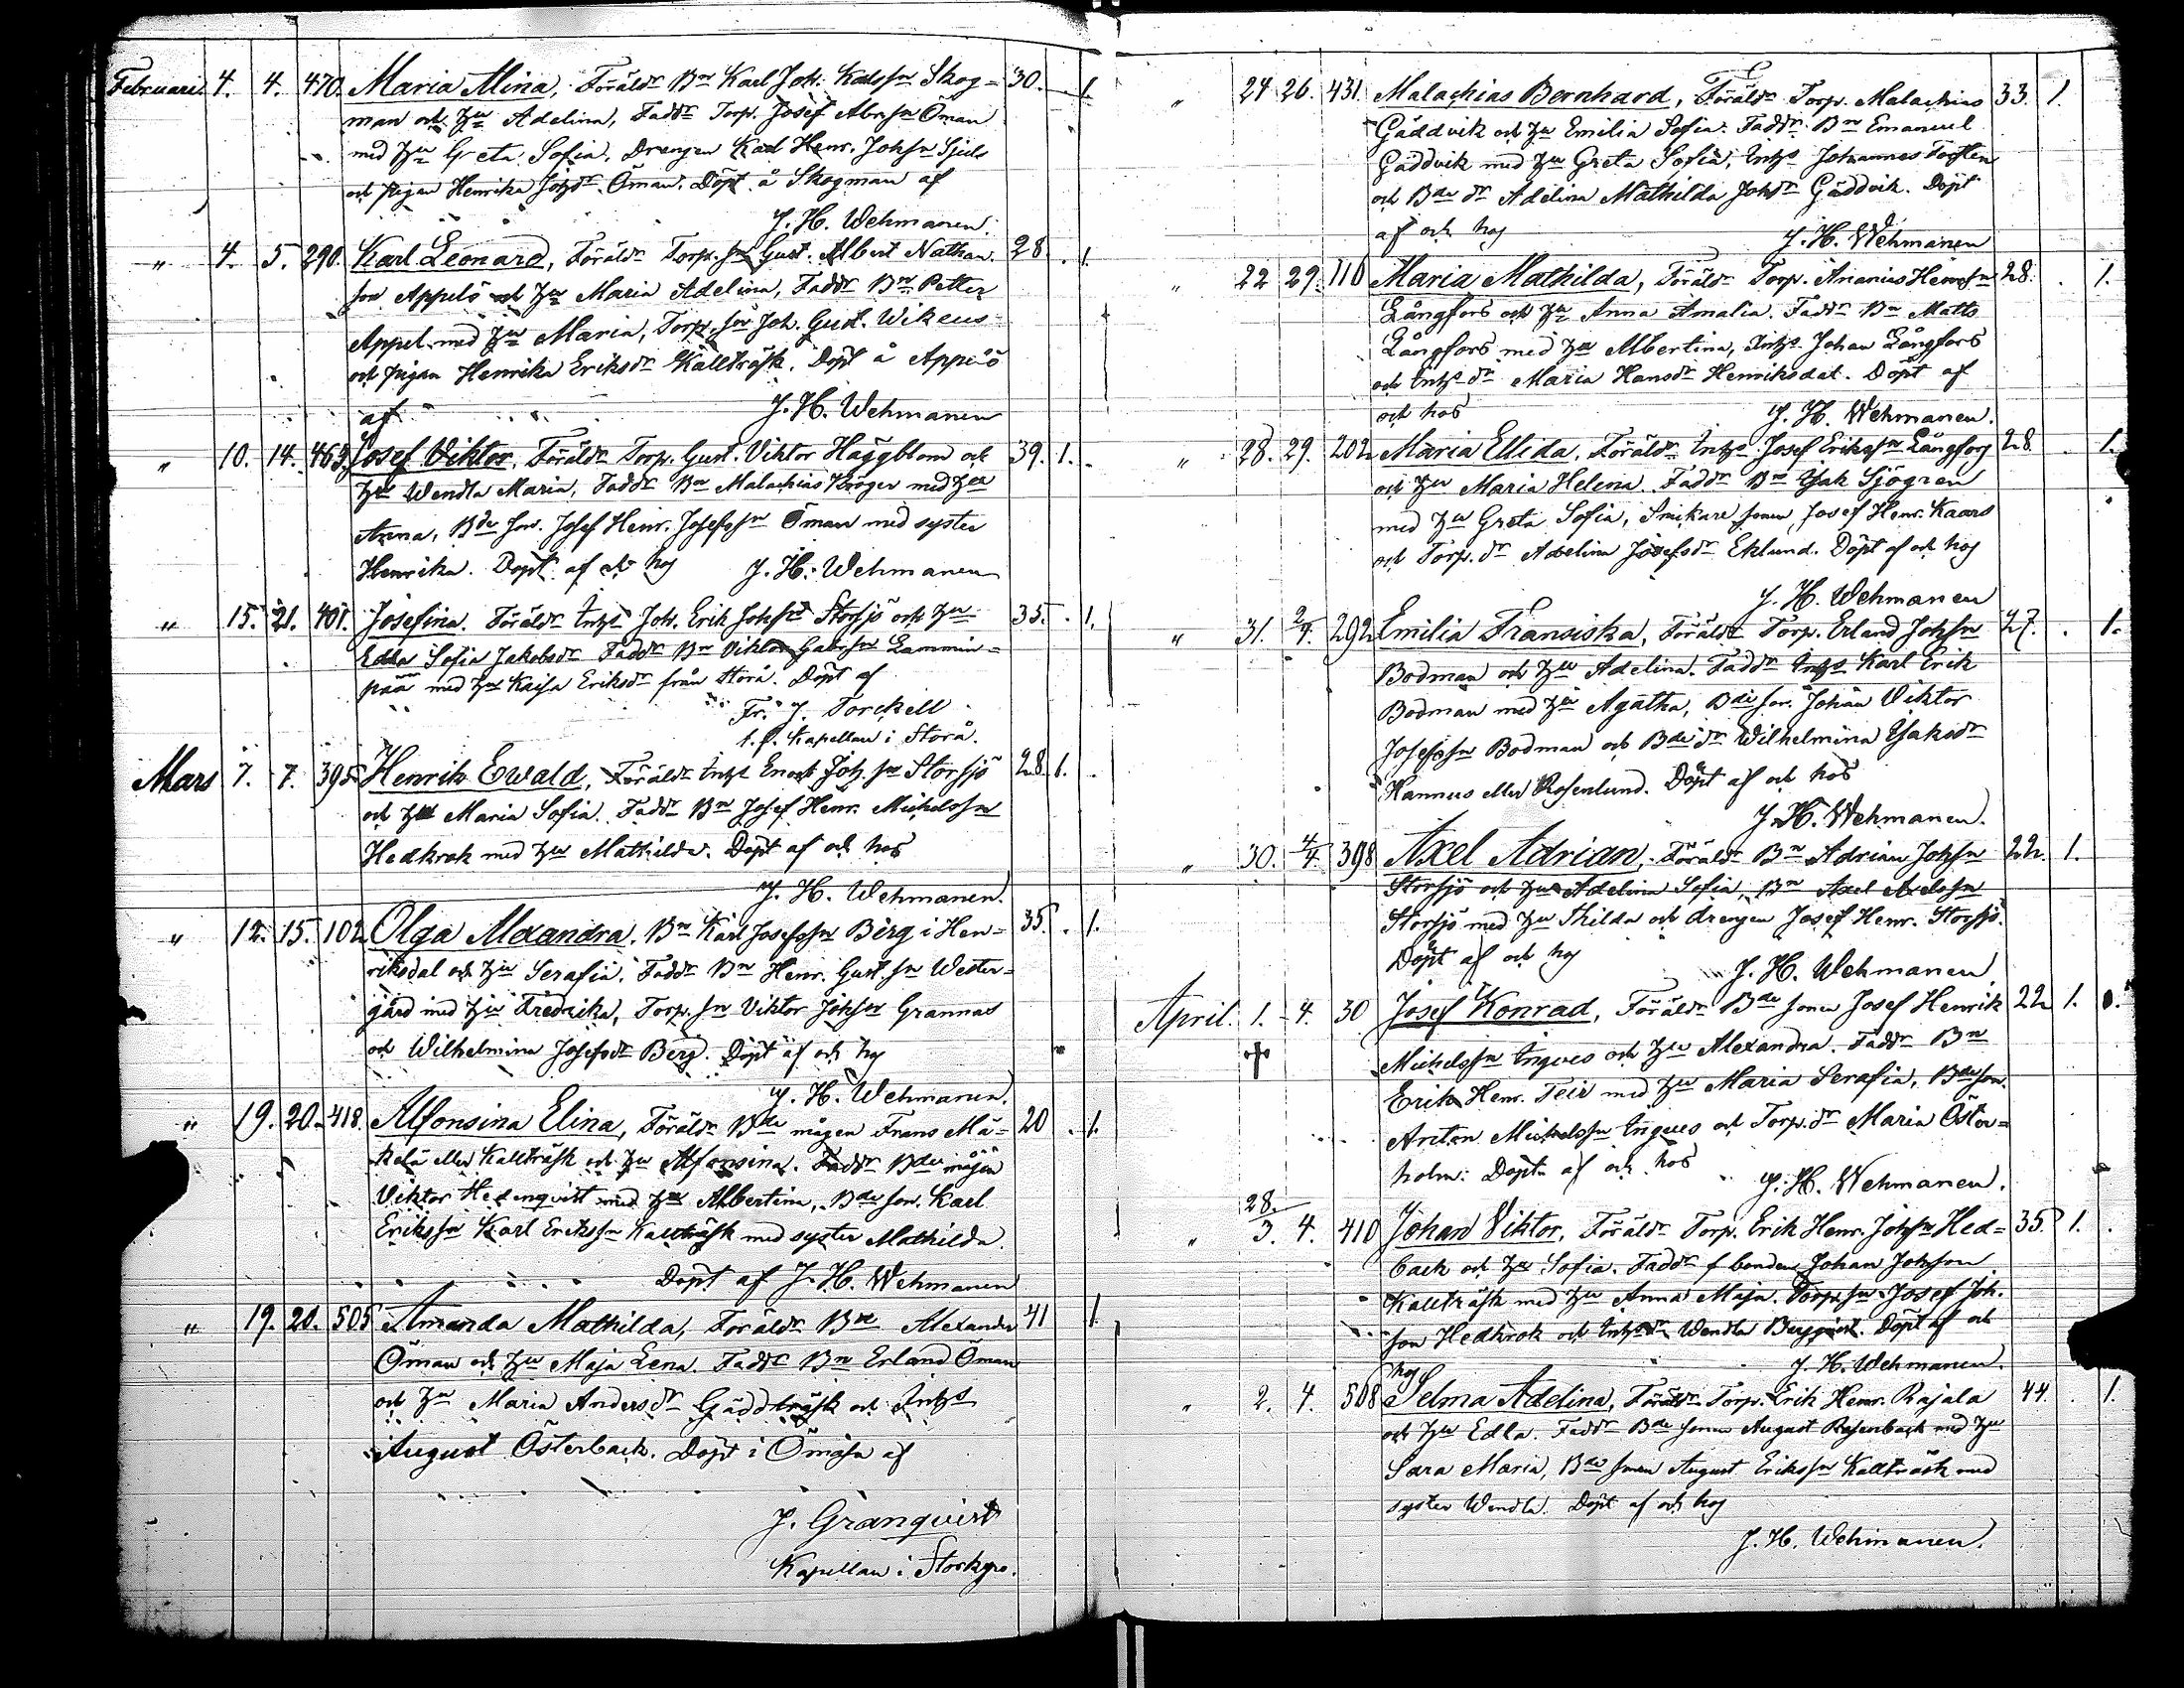 Februari. 4. 4. 470. Maria Alina, Föräldr Bn Karl Joh. Karlssn Skog= 30. 1.
man och hu Adelina, Faddr Torp. Josef Abr.sn Öman
med hu Greta Sofia, Drengen Karl Henr. Johsn
och pigan Henrika Johdr Öman. Döpt å Skogman af
J. H. Wehmanen.
" 4. 5. 290. Karl Leonard, Föräldr Torp.sn Gust. Albert Nathan. 28. 1.
son Appelö och hu Maria Adelina, Faddr Bn Petter
Appel med hu Maria, Torp.son Joh. Gust. Wikeus
och pigan Henrika Eriksdr Kallträsk. Döpt å Appelö
af J. H. Wehmanen
" 10. 14. 463. Josef Viktor, Föräldr Torp. Gust. Viktor Häggblom och 39. 1.
hu Wendla Maria, Faddr Bn Malachias Kröger med hu
Anna, Bde son. Josef Henr. Josefssn Öman med syster
Henrika. Döpt af och hos J. H. Wehmanen
" 15. 21. 401. Josefina. Föräldr Inhs Joh. Erik Johsn Storsjö och hu 35. 1.
Edla Sofia Jakobsdr Faddr Bn Viktor Gabr.sn Lammin=
pää med hu Kaisa Eriksdr från Storå. Döpt af
Fr. J. Torckell
t. f. Kapellan i Storå.
Mars 7. 7. 395 Henrik Ewald, Föräldr Inhs Enok Joh.sn Storsjö 28. 1.
och hu Maria Sofia. Faddr Bn Josef Henr. Michelssn
Hedkrok med hu Mathilda. Döpt af och hos
J. H. Wehmanen.
" 12. 15. 102 Olga Alexandra. Bn Karl Josefssn Berg i Hen= 35. 1.
riksdal och hu Serafia. Faddr Bn Henr. Gust.sn Wester=
gård med hu Fredrika, Torp.sn Viktor Johsn Grannas
och Wilhelmina Josefsdr Berg. Döpt af och hos
J. H. Wehmanen.
" 19. 20. 418. Alfonsina Elina, Föräldr Bde mågen Frans Mä= 20 1.
kelä eller Kallträsk och hu Alfonsina. Faddr Bde mågen
Viktor Hedenqvist med hu Albertina, Bde son. Karl
Erikssn Karl Erikssn Kallträsk med syster Mathilda.
Döpt af J. H. Wehmanen
" 19. 20. 505 Amanda Mathilda, Föräldr Bn Alexander 41 1.
Öman och hu Maja Lena. Faddr Bn Erland Öman
och hu Maria Andersdr Gäddträsk och Inhs
August Österback. Döpt i Ömossa af
J. Granqvist
Kapellan i Storkyro.
" 24 26. 431. Malachias Bernhard, Föräldr Torp. Malachias 33. 1.
Gäddvik och hu Emilia Sofia. Faddr Bn Emanuel
Gäddvik med hu Greta Sofia, Inhs Johannes Torsten
och Bde dr Adelina Mathilda Johdr Gäddvik. Döpt
af och hos J. H. Wehmanen
" 22 29. 110 Maria Mathilda, Föräldr Torp. Ananias Henrssn 28. 1.
Långfors och hu Anna Amalia. Faddr Bn Matts
Långfors med hu Albertina, Inhs Johan Långfors
och Inhs dr Maria Hansdr Henriksdal. Döpt af
och hos J. H. Wehmanen.
" 28. 29. 202 Maria Ellida, Föräldr Inhs Josef Erikssn Långfors 28. 1.
och hu Maria Helena. Faddr Bn Isak Sjögren
med hu Greta Sofia, Snikare sonen Josef Henr. Kaars
och Torp. dr Adelina Josefsdr Eklund. Döpt af och hos
J. H. Wehmanen
" 31. 2/4. 292 Emilia Fransiska, Föräldr Torp. Erland Johsn 27. 1.
Bodman och hu Adelina. Faddr Inhs Karl Erik
Bodman med hu Agatha, Bde son. Johan Viktor
Josefssn Bodman och Bde dr Wilhelmina Isaksdr
Hannus eller Rosenlund. Döpt af och hos
J. H. Wehmanen.
" 30. 4/4. 398 Axel Adrian, Föräldr Bn Adrian Johsn 22. 1.
Storsjö och hu Adelina Sofia, Bn Axel Axelssn
Storsjö med hu Hilda och drengen Josef Henr. Storsjö.
Döpt af och hos J. H. Wehmanen
April. 1. 4. 30 Josef Konrad, Föräldr Bde sonen Josef Henrik 22 1.
† Michelssn Ingves och hu Alexandra. Faddr Bn
Erik Henr. Teir med hu Maria Serafia, Bde son.
Anton Michelssn Ingves och Torp. dr Maria Östen=
holm. Döpt af och hos J. H. Wehmanen.
" 28./3. 4. 410 Johan Viktor, Föräldr Torp. Erik Henr. Johsn Hed= 35. 1.
back och hu Sofia. Faddr f bonden Johan Johsson
Kallträsk med hu Anna Maja. Torp.sn Josef Joh.
son Hedkrok och Inhs dr Wendla Bergqvist. Döpt af och
hos J. H. Wehmanen.
" 2. 4. 508 Selma Adelina, Föräldr Torp. Erik Henr. Rajala 44. 1.
och hu Edla. Faddr Bde sonen August Rosenback med hu
Sara Maria, Bde sonen August Erikssn Kallträsk med
syster Wendla. Döpt af och hos
J. H. Wehmanen.